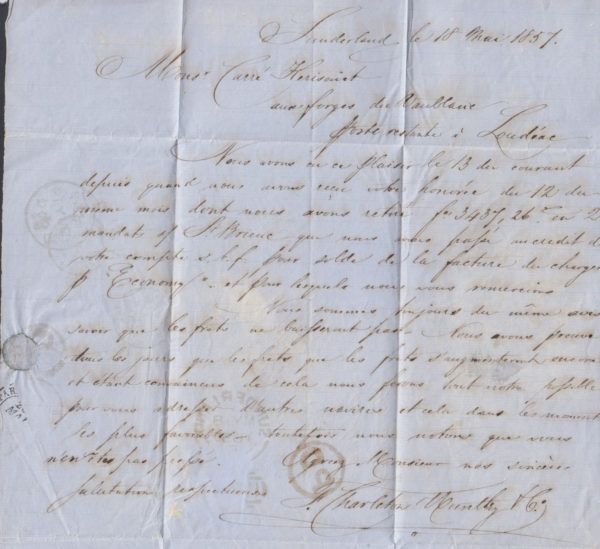 Sunderland le 18 Mai 1857.
Monsr Carré Kerisouet
aux forges du Vaublanc
poste restante à Loudéac
Nous avons eu ce plaisir le 13 du courant
depuis quand nous avons reçu votre honorée du 12 du
même mois dont nous avons retiré fs 3437,26 cs en 2
mandats s/ St Brieuc que nous avons passé au credit de
votre compte s.b.f. pour solde de la facture du charget
p "Economy" et pour lesquels nous vous remercions
Nous sommes toujours du même avis
savoir que les frêts ne baisseront pas. Nous avons prouvé
tous les jours que les frêts que les prêts s'augmenteront encore
et étant convaincus de cela nous ferons tout notre possible
pour vous adresser d'autres navires et cela dans les moments
les plus favorables toutefois nous notons que vous
n'en êtes pas pressé. Agréez Monsieur nos sincères
salutations respectueuses
Charleton & Co